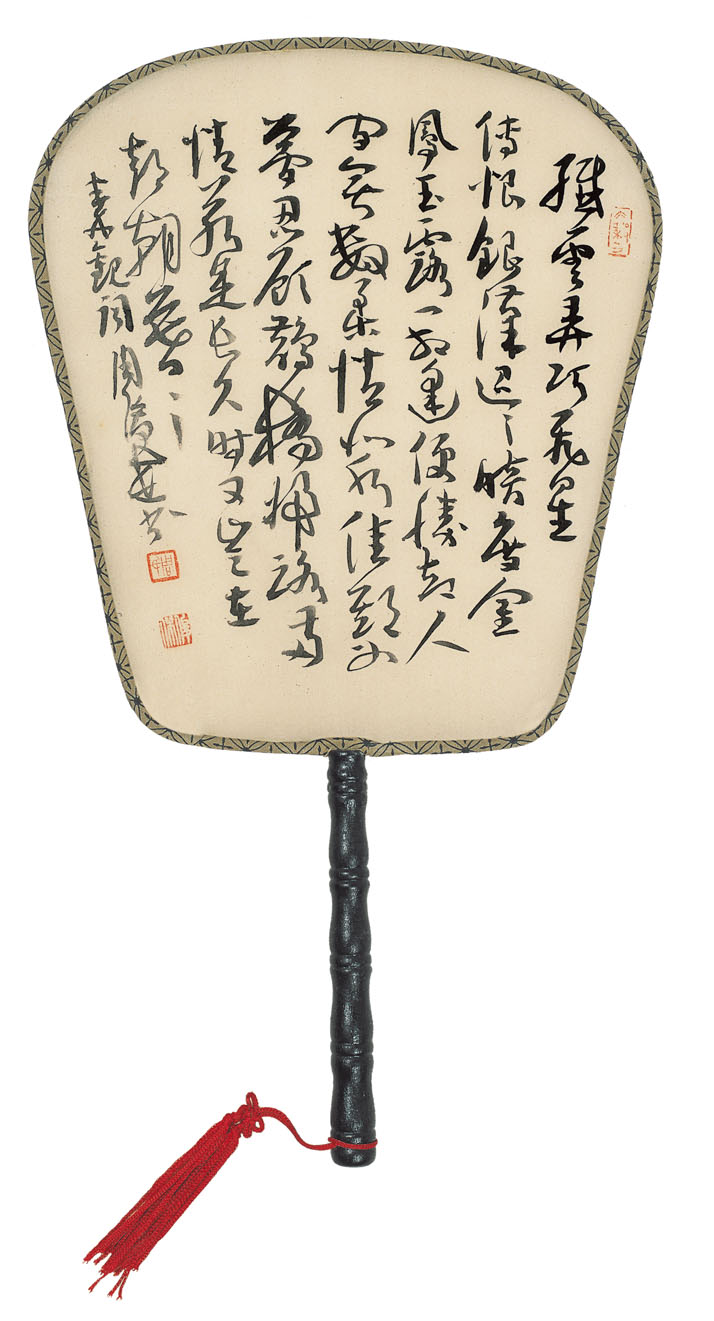 纖雲弄巧飛星
傳恨銀漢迢〻暗度金
風玉露一相逢便勝卻人
間無數柔情似水佳期如
夢忍顧鵲橋歸路兩
情若是長久時又豈在
朝朝暮〻
秦觀詞周書